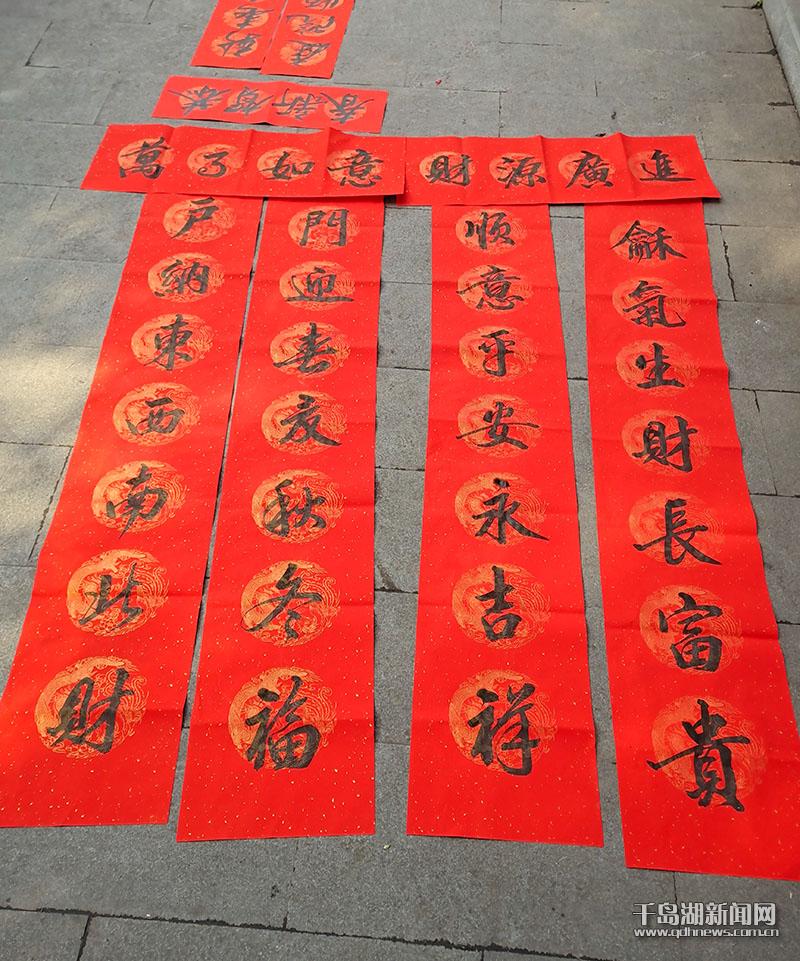 恭賀新春
萬事如意
財源廣進
戶納東西南北財
門迎春夏秋冬福
順意平安永吉祥
龢氣生財長富貴
千岛湖新闻网
www.qdhnews.com.cn